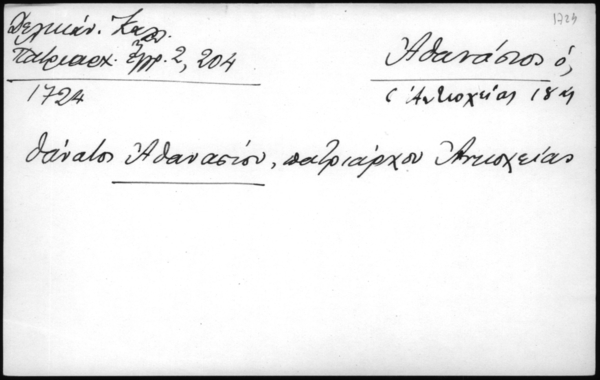 1724
Δελικάν. Καλ.
Πατριαρχ. Ἔγγρ. 2, 204
1724
Ἀθανάσιος ὁ,
Ἀντιοχείας
θάνατος Ἀθανασίου, πατριάρχου Ἀντιοχείας